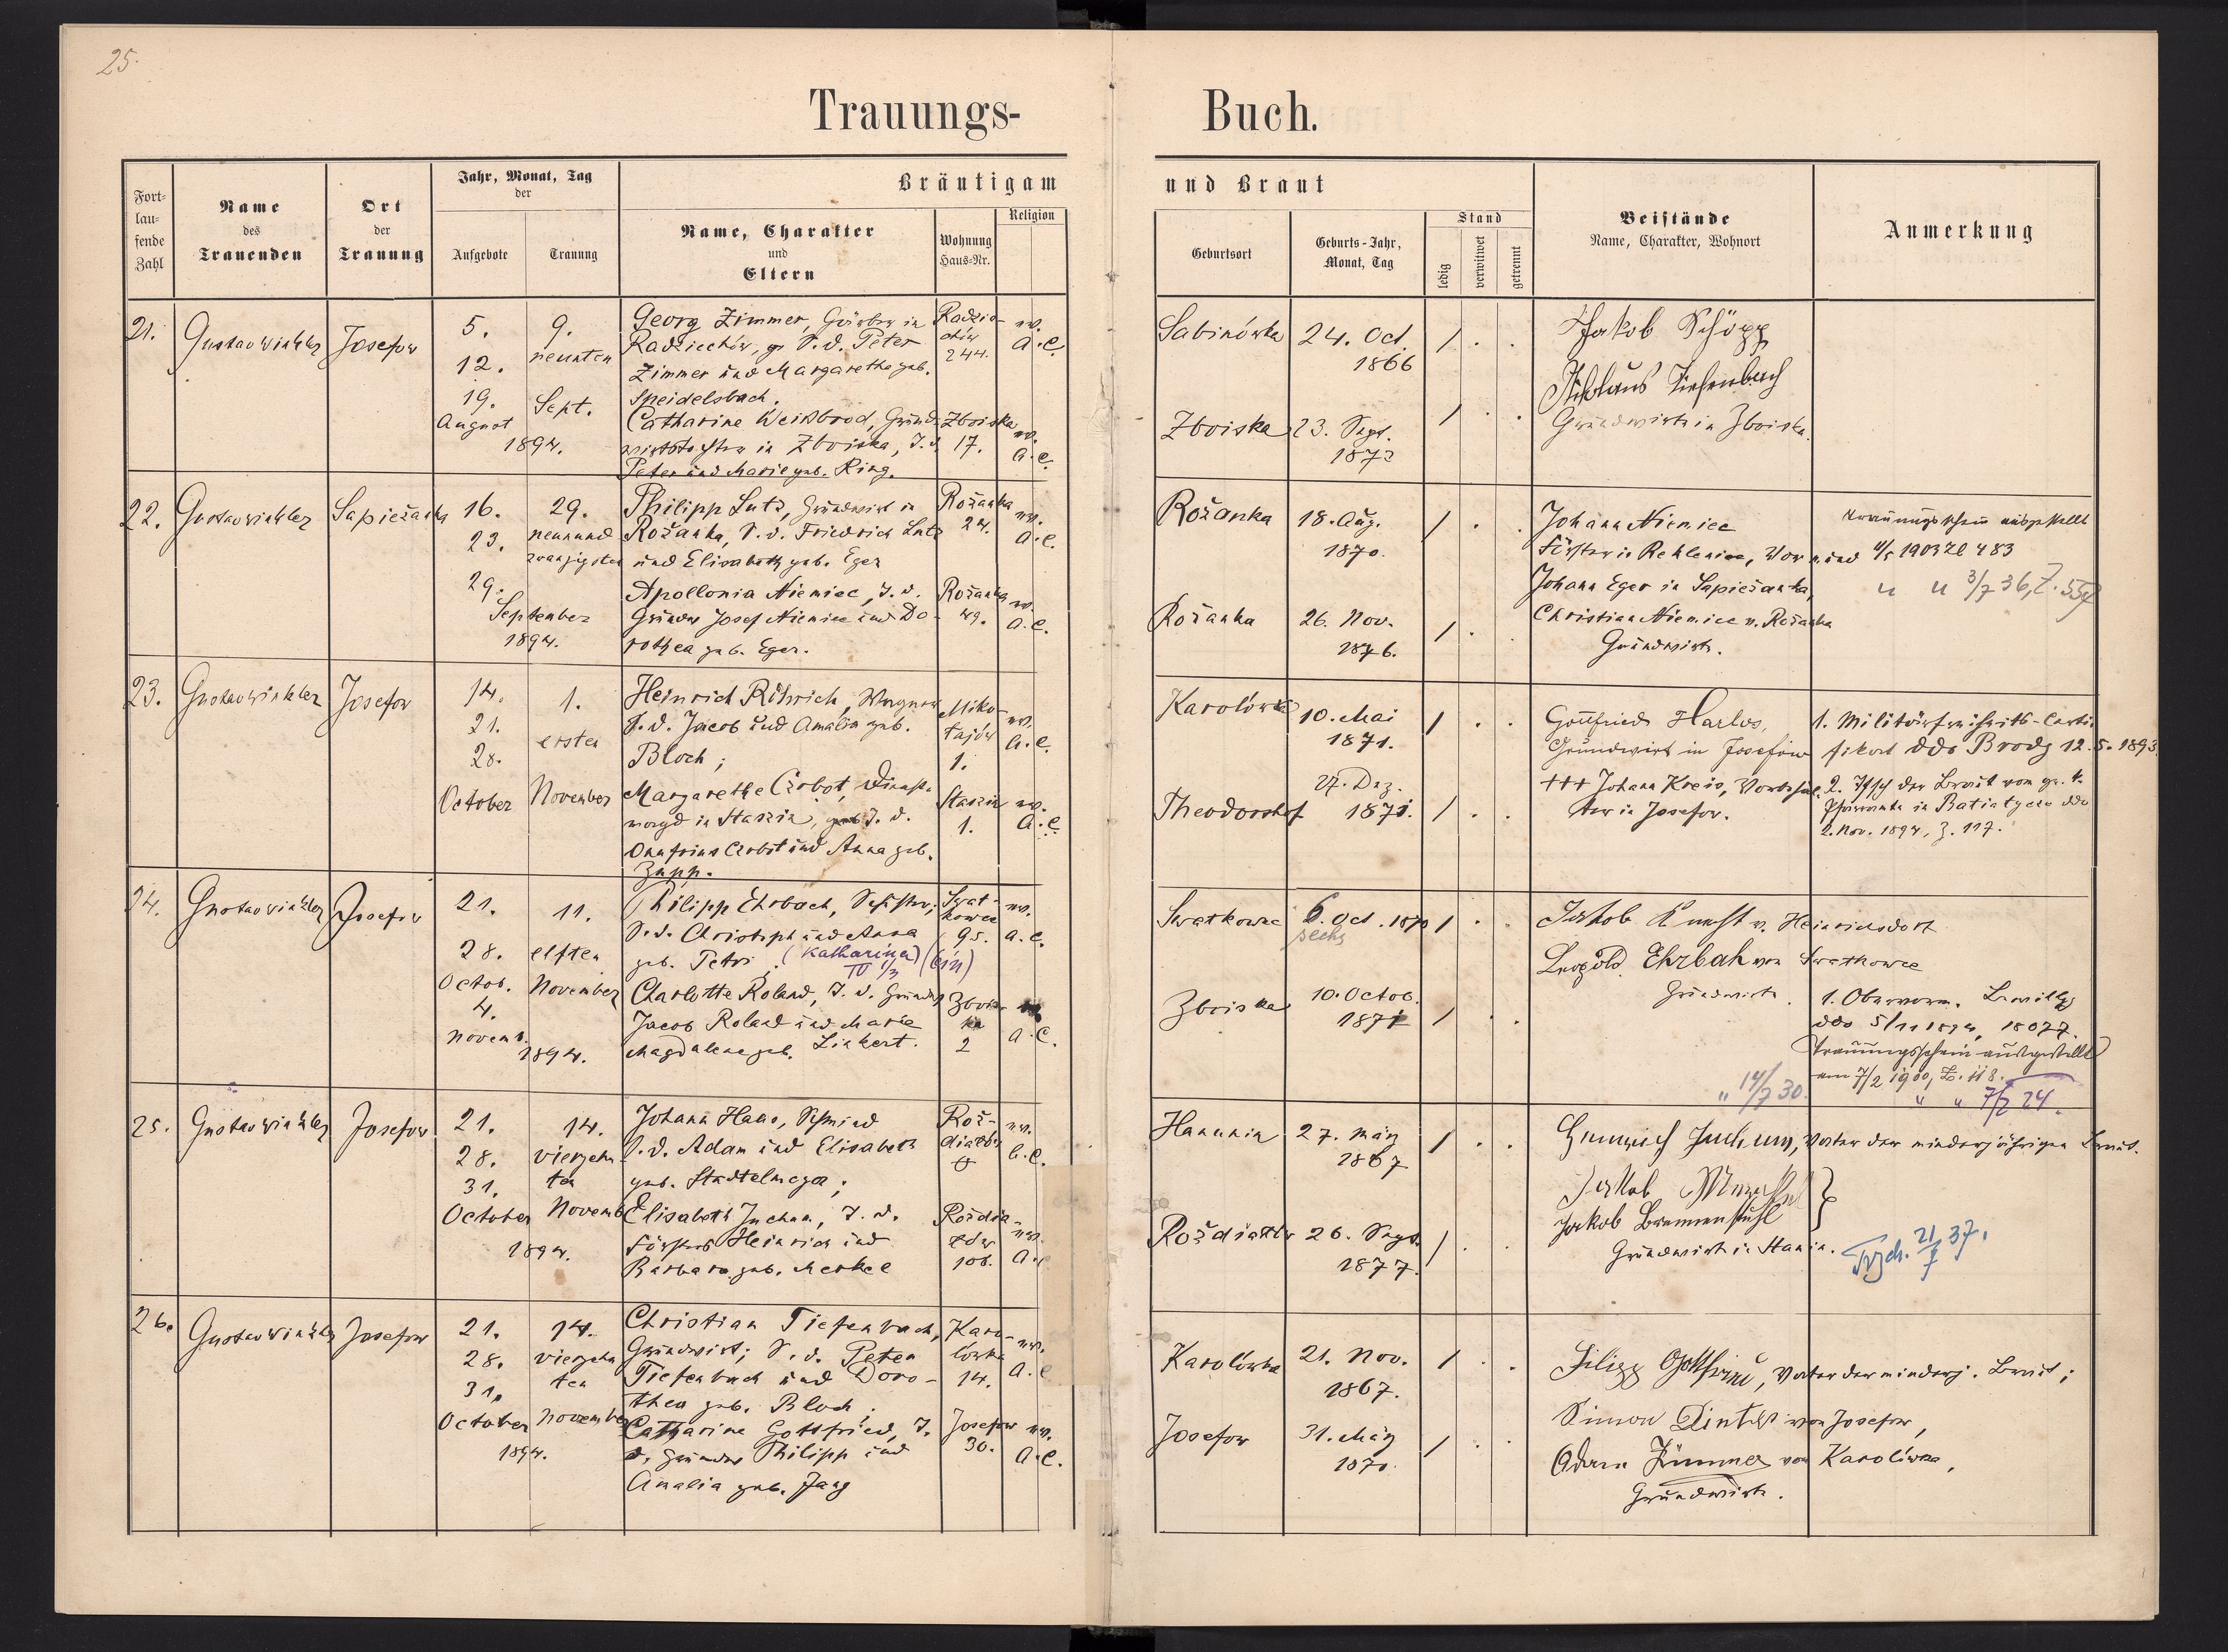 25.
Trauungs-Buch.
Fort-
lau-
fende
Zahl
Name
des
Trauenden
Ort
der
Trauung
Jahr, Monat, Tag
der
Aufgebote
Trauung
Bräutigam und Braut
Name, Charakter
und
Eltern
Wohnung
Haus-Nr.
Religion
Geburtsort
Geburts-Jahr,
Monat, Tag
Stand
ledig
verwitwet
getrennt
Beistände
Name, Charakter, Wohnort
Anmerkung
21.
Gustav Winkler
Josefow
5.
12.
19.
August
1894.
9.
neunten
Sept.
Georg Zimmer, Gärber in
Radziechów, S. d. Peter
Zimmer und Margarethe geb.
Speidelsbach.
Radzie-
chów
244.
ev.
A. C.
Catharine Weißbrod, Grund-
wirtstochter in Zboiska, T. d.
Peter und Marie geb. Ring.
Zboiska
17.
ev.
A. C.
Sabinówka
24. Oct.
1866
/ . .
Zboiska
23. Sept.
/ . .
Jakob Schöpp
Nikolaus Tiefenbach
Grundwirte in Zboiska.
22.
Gustav Winkler
Sapieżanka
16.
23.
29.
September
1894.
29.
neunund
zwanzigsten
Philipp Lutz, Grundwirt in
Rożanka, S. d. Friedrich Lutz
und Elisabeth geb. Eger
Rożanka
24.
ev.
A. C.
Apollonia Niemiec, T. d.
Grundw. Josef Niemiec und Do-
rothea geb. Eger.
Rożanka
49.
ev.
A. C.
Rożanka
18. Aug.
1870.
/ . .
Rożanka
26. Nov.
1876.
/ .
Johann Niemiec
Förster in Rehleniec, Vormund
Johann Eger in Sapieżanka,
Christian Niemiec v. Rożanka
Grundwirte.
Trauungsschein ausgestellt
1903 Zl 483
" " 3/7 36, Z.
23.
Gustav Winkler
Josefow
14.
21.
28.
October
1.
ersten
November
Heinrich Röhrich, Wagner
S. d. Jacob und Amalia geb.
Bloch;
Miko-
łajów
1.
ev.
A. C.
Margarethe Crobot, Dienst-
magd in Stanin, T. d.
Onufrius Crobot und Anna geb.
Zapp.
Stanin
1.
ev.
A. C.
Karolówka
10. Mai
1871.
/ . .
Theodorshof
27. Dez.
1871.
/ . .
Gottfried Harlos,
Grundwirt in Josefow
+++ Johann Kreis,
in Josefow.
1. Militärfreiheits-Certi-
fikat ddo Brody 12.5.1893.
2. der Braut vom gr. k.
Pfarramte in Batiatycze ddo
2. Nov. 1894, Z. 117.
24.
Gustav Winkler
Josefow
21.
28.
Octob.
4.
Novemb.
1894.
11.
elften
November
Philipp Ehrbach, Schuster;
S. d. Christoph und Anna
geb. Petri. (Katharina) (ein)
Swat-
kowce
95.
ev.
A. C.
Charlotte Roland, T. d. Grundw.
Jacob Roland und Marie
Magdalena geb. Linkert.
Zbois-
ka
2
A. C.
Swatkowce
6. Oct. 1870
sechs
/ . .
Zboiska
10. Octob.
1871
/ . .
Jakob Knecht v. Heinrichsdorf
Leopold Ehrbah von Swatkowce
Grundwirte.
1. Obervorm. Bewillg
ddo 5/11 1894, 18077.
Trauungsschein ausgestellt
am 7/2 1900, Z. 118.
" 14/7 30.
" " 7/2 24.
25.
Gustav Winkler
Josefow
21.
28.
31.
October
1894.
14.
vierzehn
ten
Novemb.
Johann Haas, Schmied
S. d. Adam und Elisabeth
geb. Stadtelmeyer;
Roż-
diałów
ev.
A. C.
Elisabeth Juchum, T. d.
Försters Heinrich und
Barbara geb. Merkel
Rożdia-
łów
108.
ev.
A.
Hanunin
27. März
1867
/ . .
Rożdiałów
26. Sept.
1877.
/ . .
Heinrich Juchum, Vater der minderjährigen Braut.
Jakob
Jakob Brennenstuhl
Grundwirte in Stanin.
21/7 37.
26.
Gustav Winkler
Josefow
21.
28.
31.
October
1894.
14.
vierzehn
ten
November
Christian Tiefenbach,
Grundwirt; S. d. Peter
Tiefenbach und Doro-
thea geb. Bloch.
Karo-
lówka
14.
ev.
A. C
Catharine Gottfried, T.
d. Grundw. Philipp und
Amalia geb. Jung
Josefow
30.
ev.
A. C.
Karolówka
21. Nov.
1867.
/ . .
Josefow
31. März
/ . .
Filipp Gottfried, Vater der minderj. Braut;
Simon von Josefow,
Adam Zimmer von Karolówka,
Grundwirte.